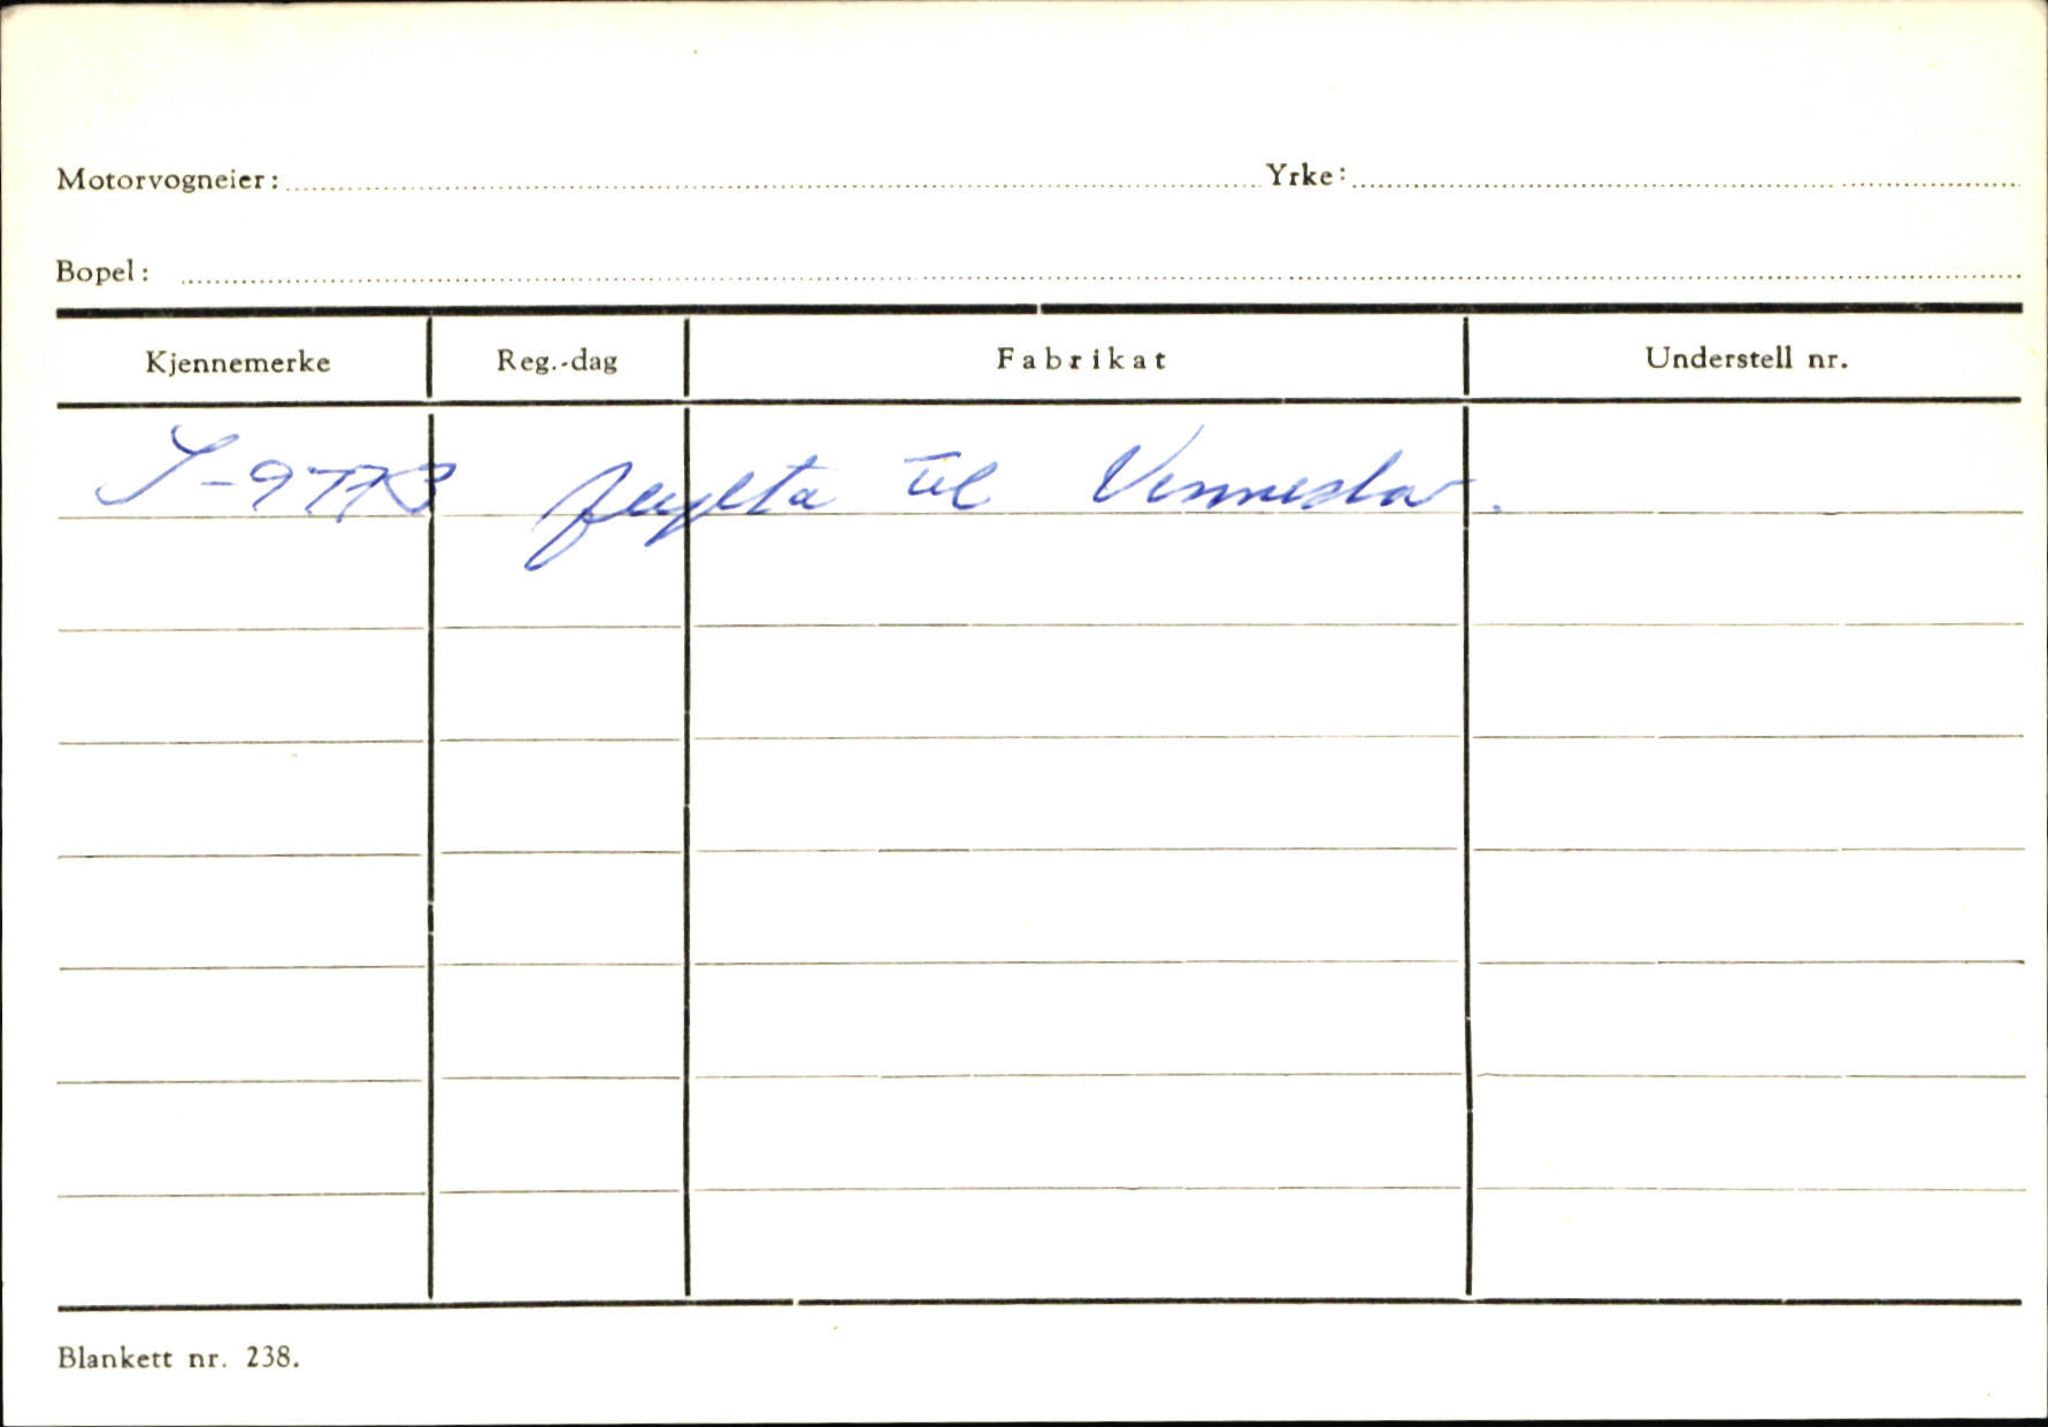 Motorvogneier: Yrke:
Bopel:
Kjennemerke Reg.-dag Fabrikat Understell nr.
S-9773 flytta til Vennesla.
Blankett nr. 238.